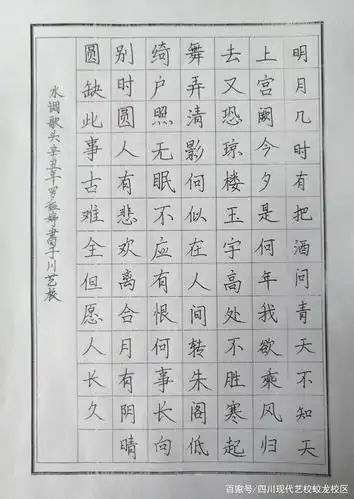 明月几时有把酒问青天不知天
上宫阙今夕是何年我欲乘风归
去又恐琼楼玉宇高处不胜寒起
舞弄清影何似在人间转朱阁低
绮户照无眠不应有恨何事长向
别时圆人有悲欢离合月有阴晴
圆缺此事古难全但愿人长久
水调歌头辛丑年罗书于川艺校
百家号/四川现代艺校蛟龙校区